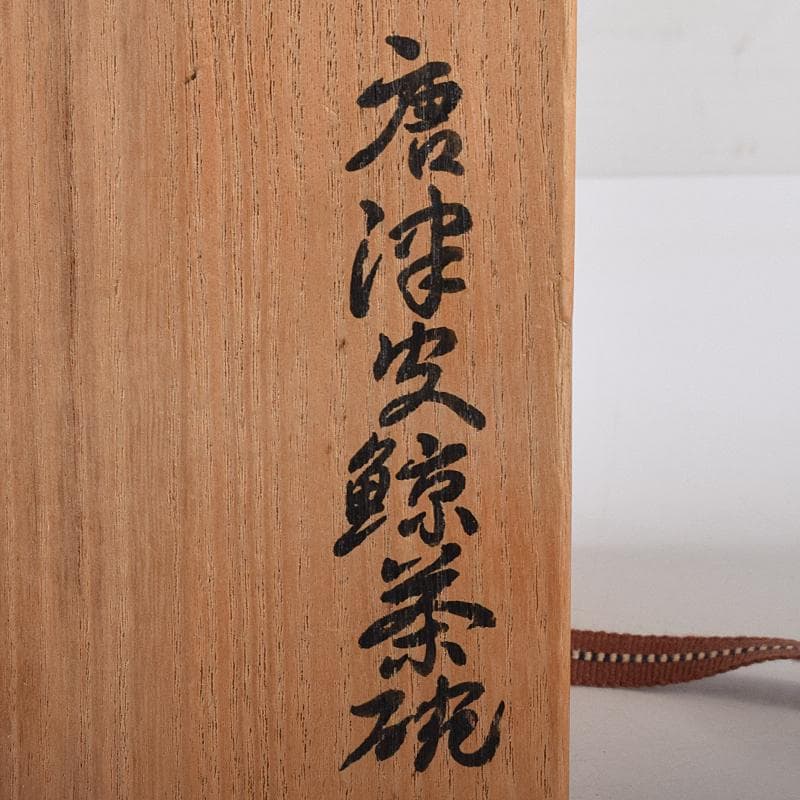 唐津皮鯨茶碗